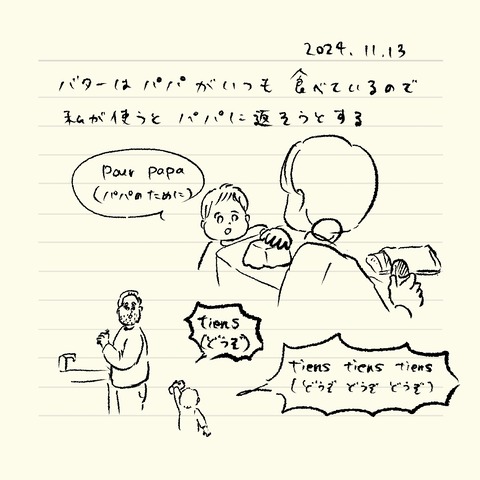 2024.11.13
バターは パパがいつも 食べているので
私が使うと パパに返そうとする
pour papa
(パパのために)
tiens
(どうぞ)
tiens tiens tiens
(どうぞ どうぞ どうぞ)